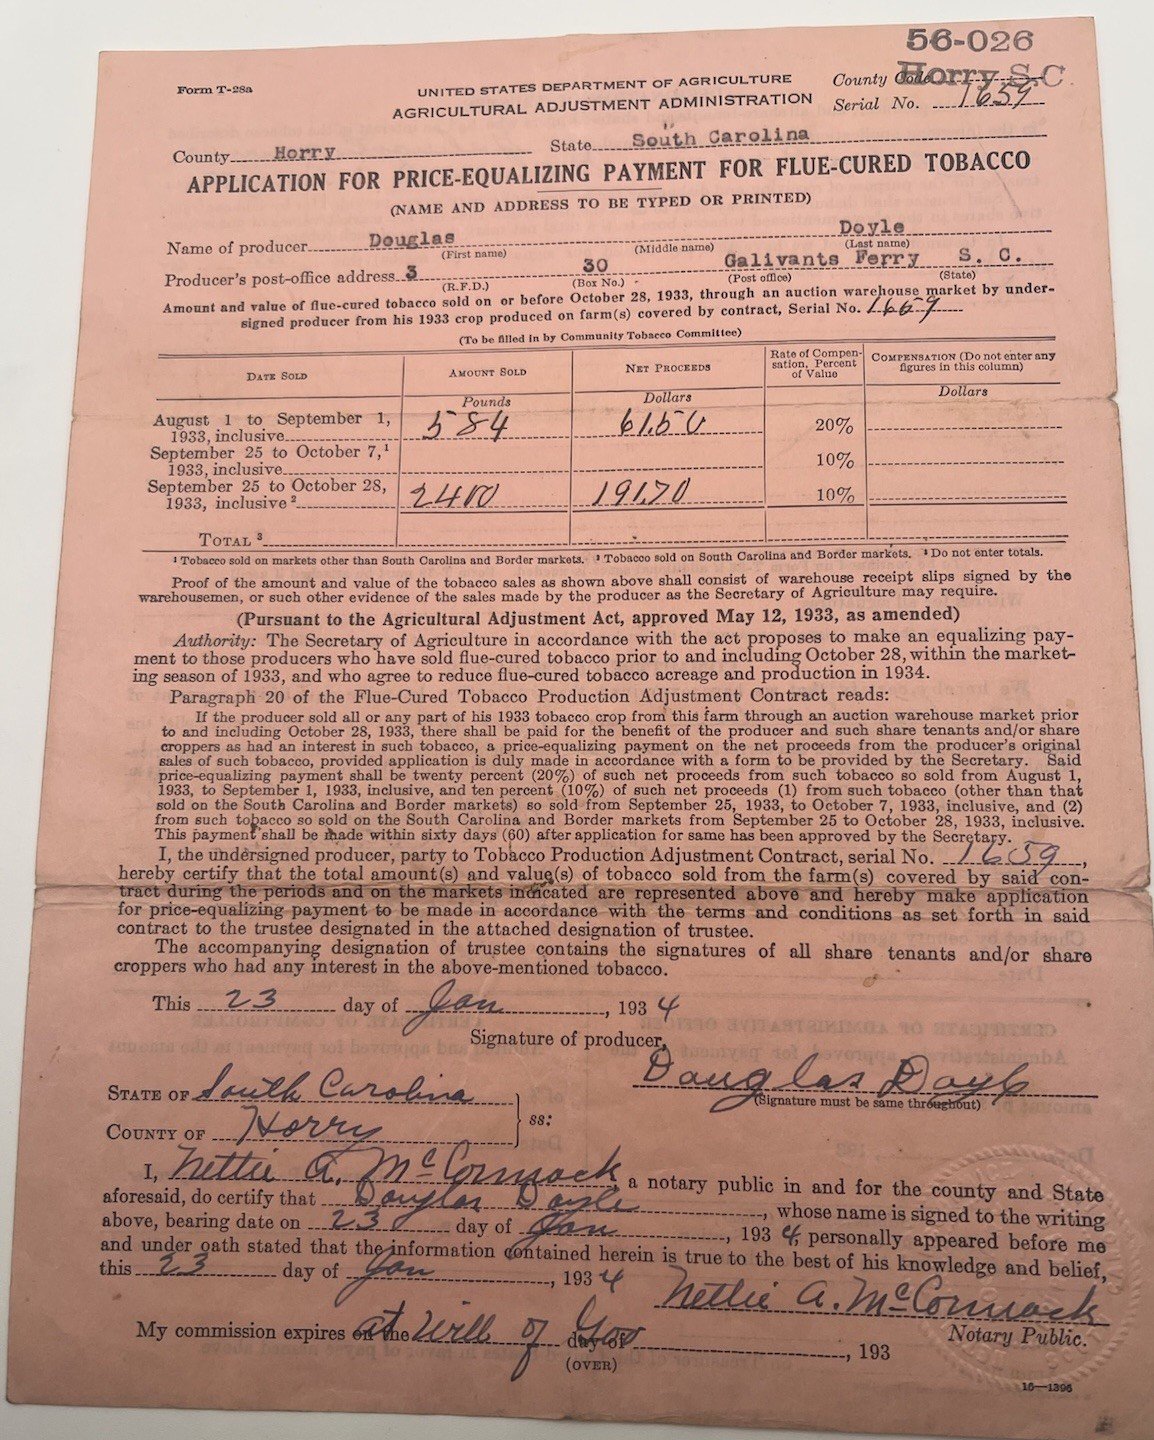 56-026
Form T-28a
UNITED STATES DEPARTMENT OF AGRICULTURE
County Code Horry, S.C
AGRICULTURAL ADJUSTMENT ADMINISTRATION
Serial No. 1659
County Horry State South Carolina
APPLICATION FOR PRICE-EQUALIZING PAYMENT FOR FLUE-CURED TOBACCO
(NAME AND ADDRESS TO BE TYPED OR PRINTED)
Name of producer Douglas Doyle
(First name) (Middle name) (Last name)
Producer's post-office address 3 30 Galivants Ferry S. C.
(R.F.D.) (Box No.) (Post office) (State)
Amount and value of flue-cured tobacco sold on or before October 28, 1933, through an auction warehouse market by under-
signed producer from his 1933 crop produced on farm(s) covered by contract, Serial No. 1659
(To be filled in by Community Tobacco Committee)
DATE SOLD AMOUNT SOLD NET PROCEEDS Rate of Compen-sation, Percent of Value COMPENSATION (Do not enter any figures in this column)
Pounds Dollars Dollars
August 1 to September 1,
1933, inclusive 584 61.50 20%
September 25 to October 7,¹
1933, inclusive 10%
September 25 to October 28,
1933, inclusive ² 2400 191.70 10%
TOTAL ³
¹ Tobacco sold on markets other than South Carolina and Border markets. ² Tobacco sold on South Carolina and Border markets. ³ Do not enter totals.
Proof of the amount and value of the tobacco sales as shown above shall consist of warehouse receipt slips signed by the
warehousemen, or such other evidence of the sales made by the producer as the Secretary of Agriculture may require.
(Pursuant to the Agricultural Adjustment Act, approved May 12, 1933, as amended)
Authority: The Secretary of Agriculture in accordance with the act proposes to make an equalizing pay-
ment to those producers who have sold flue-cured tobacco prior to and including October 28, within the market-
ing season of 1933, and who agree to reduce flue-cured tobacco acreage and production in 1934.
Paragraph 20 of the Flue-Cured Tobacco Production Adjustment Contract reads:
If the producer sold all or any part of his 1933 tobacco crop from this farm through an auction warehouse market prior
to and including October 28, 1933, there shall be paid for the benefit of the producer and such share tenants and/or share
croppers as had an interest in such tobacco, a price-equalizing payment on the net proceeds from the producer's original
sales of such tobacco, provided application is duly made in accordance with a form to be provided by the Secretary. Said
price-equalizing payment shall be twenty percent (20%) of such net proceeds from such tobacco so sold from August 1,
1933, to September 1, 1933, inclusive, and ten percent (10%) of such net proceeds (1) from such tobacco (other than that
sold on the South Carolina and Border markets) so sold from September 25, 1933, to October 7, 1933, inclusive, and (2)
from such tobacco so sold on the South Carolina and Border markets from September 25 to October 28, 1933, inclusive.
This payment shall be made within sixty days (60) after application for same has been approved by the Secretary.
I, the undersigned producer, party to Tobacco Production Adjustment Contract, serial No. 1659,
hereby certify that the total amount(s) and value(s) of tobacco sold from the farm(s) covered by said con-
tract during the periods and on the markets indicated are represented above and hereby make application
for price-equalizing payment to be made in accordance with the terms and conditions as set forth in said
contract to the trustee designated in the attached designation of trustee.
The accompanying designation of trustee contains the signatures of all share tenants and/or share
croppers who had any interest in the above-mentioned tobacco.
This 23 day of Jan, 1934
Signature of producer,
Douglas Doyle
(Signature must be same throughout)
STATE OF South Carolina
COUNTY OF Horry ss:
I, Nettie A. McCormack, a notary public in and for the county and State
aforesaid, do certify that Douglas Doyle, whose name is signed to the writing
above, bearing date on 23 day of Jan, 1934, personally appeared before me
and under oath stated that the information contained herein is true to the best of his knowledge and belief,
this 23 day of Jan, 1934
Nettie A. McCormack
My commission expires on the at Will of Gov day of, 193
Notary Public.
(OVER)
16—1396